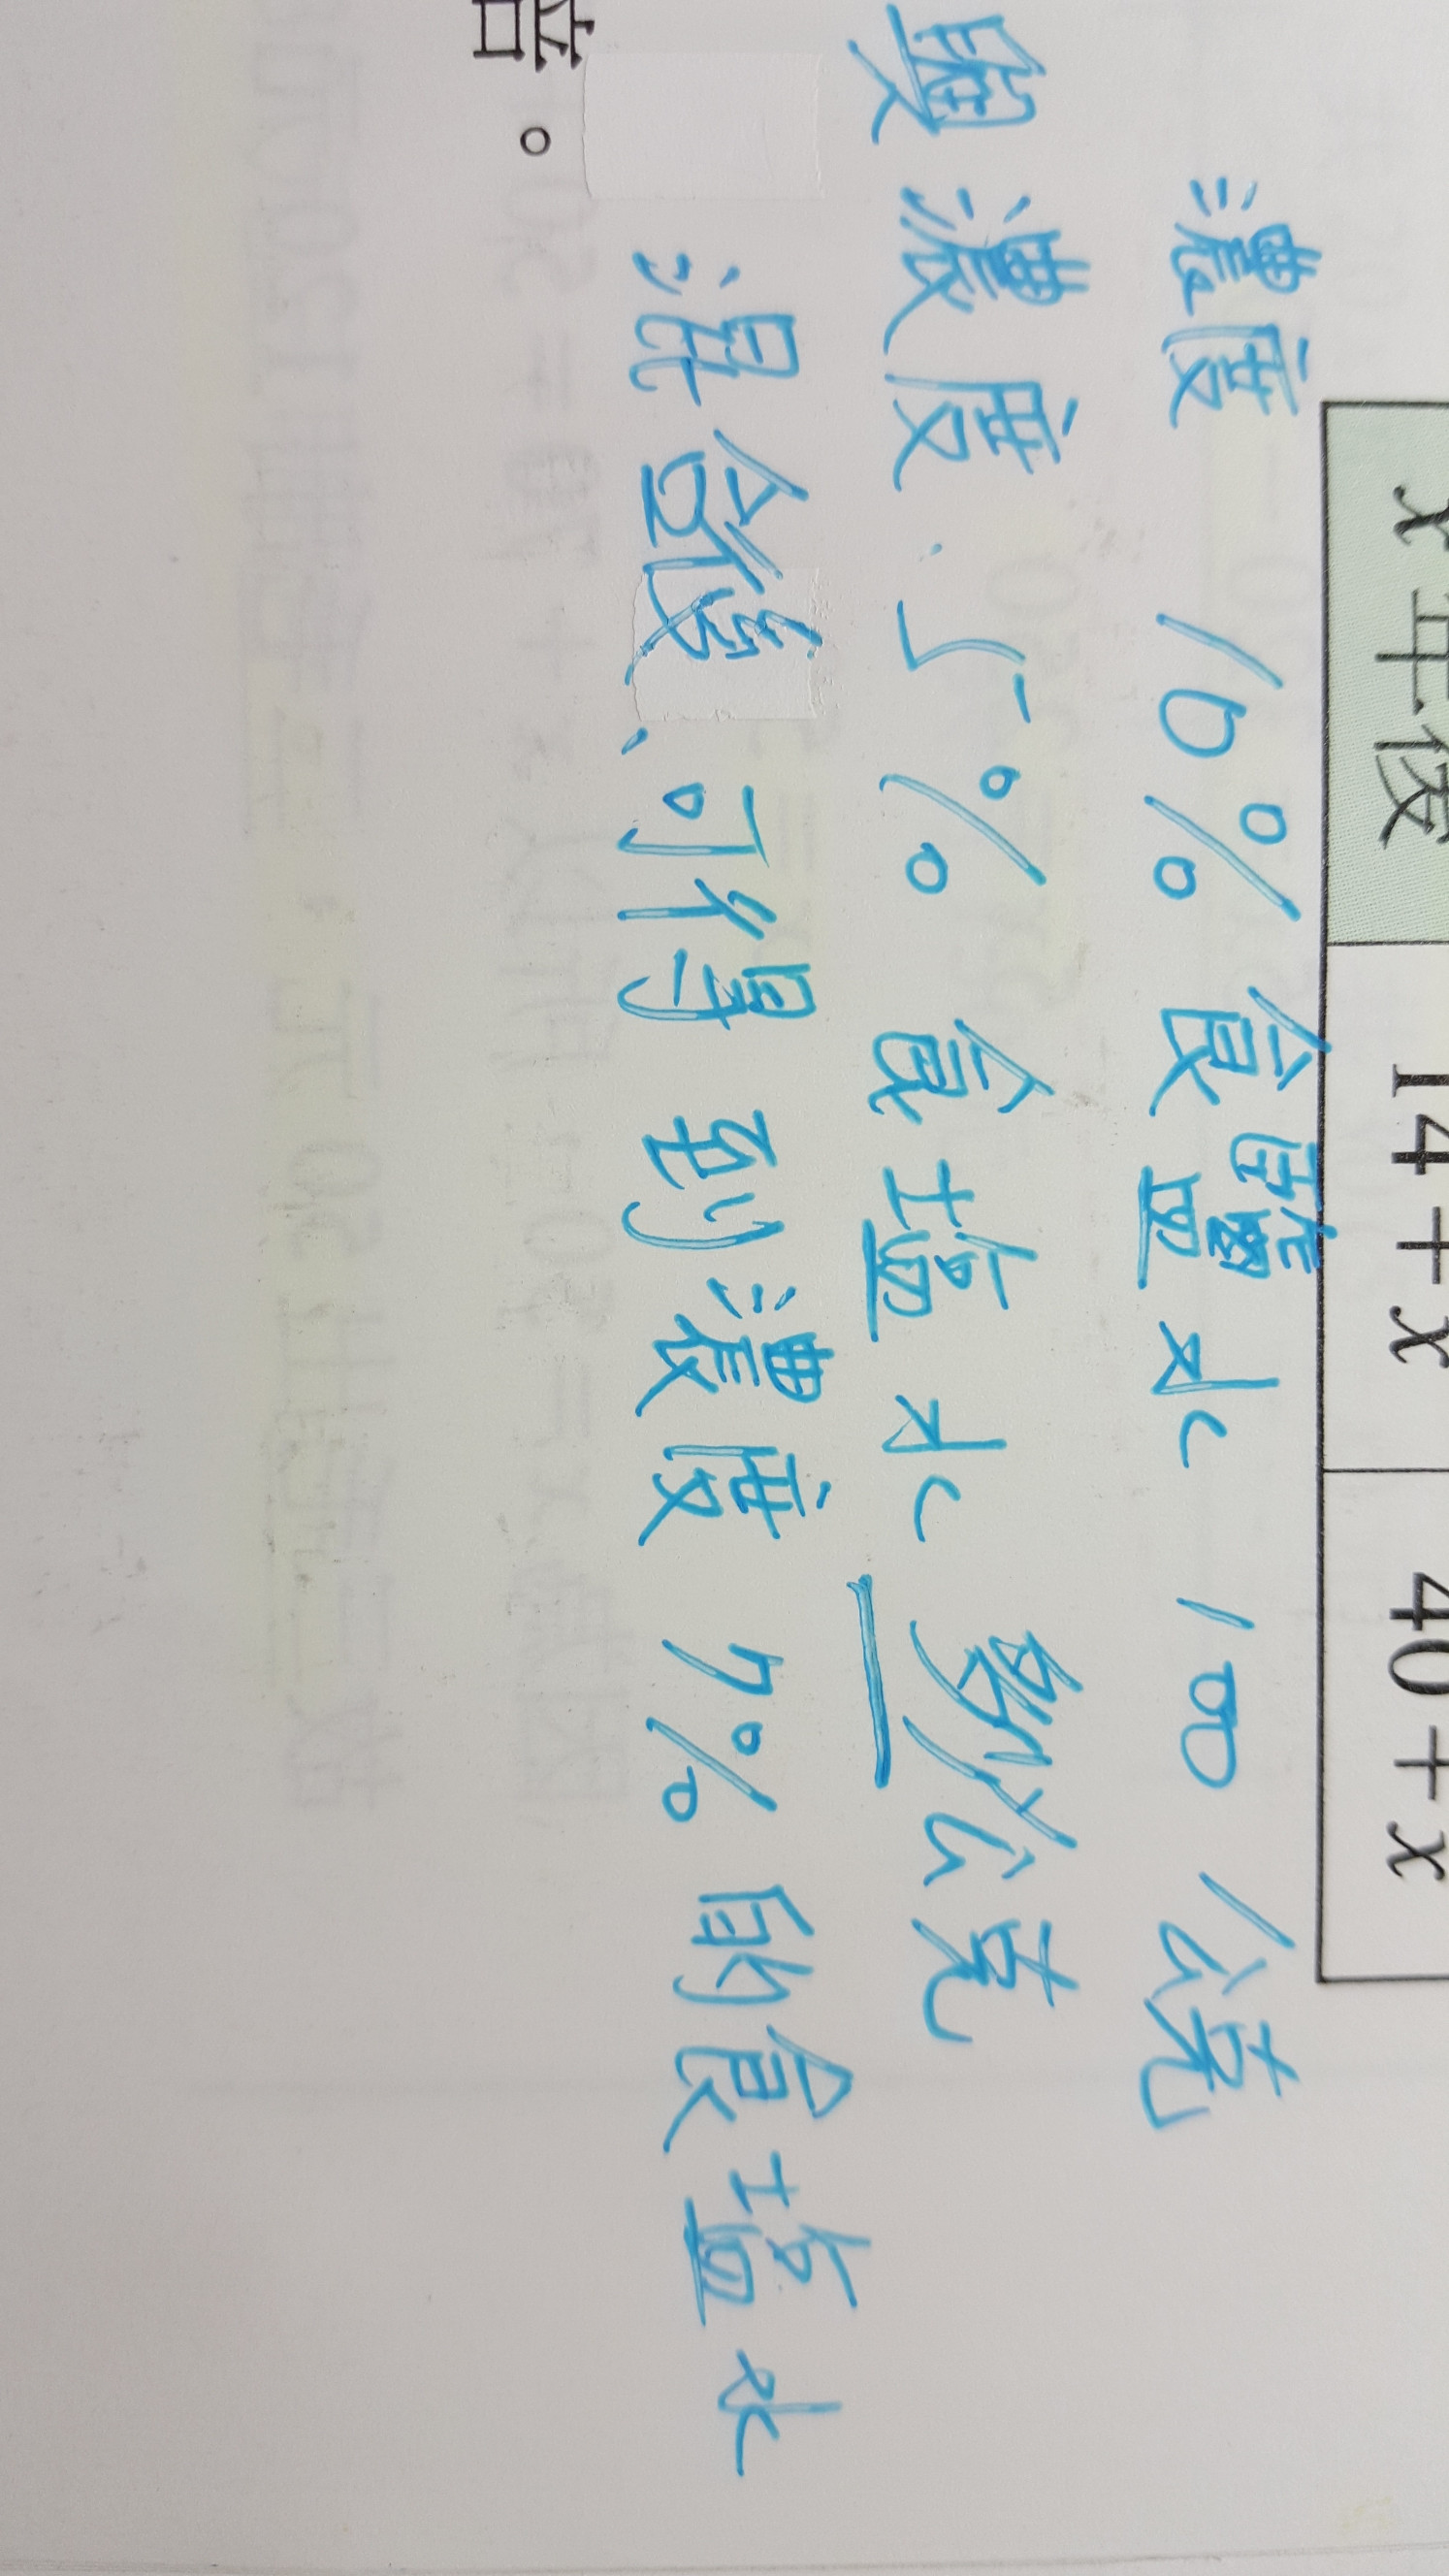 x年後 14+x 40+x
濃度 10% 食鹽水 100 公克
與濃度 5% 食塩水 多少公克
混合後,可得到濃度 7% 的食塩水
倍。